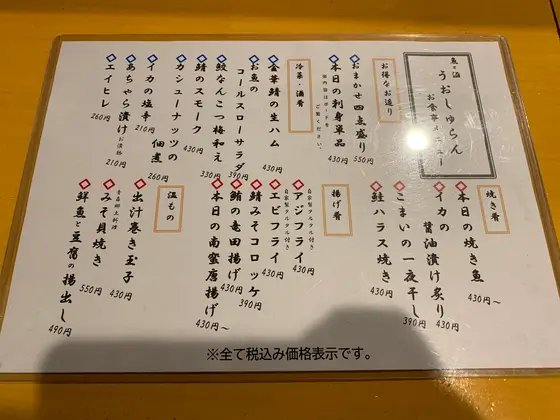 魚と酒
うおしゅらん
お食事メニュー
お得なお造り
おまかせ四点盛り
550円
本日の刺身単品
※内容はボードをご覧ください。
430円
冷菜・酒肴
金華鯖の生ハム
430円
お魚の
コールスローサラダ
390円
鮫なんこつ梅和え
330円
鯖のスモーク
430円
カシューナッツの
佃煮
260円
イカの塩辛
210円
あちゃら漬け お漬物
210円
エイヒレ
260円
焼き肴
本日の焼き魚
430円~
イカの
醤油漬け炙り
430円
こまいの一夜干し
390円
鮭ハラス焼き
430円
揚げ肴
自家製タルタル付き
アジフライ
430円
自家製タルタル付き
エビフライ
430円
鯖みそコロッケ
390円
鮪の竜田揚げ
430円
本日の南蛮唐揚げ
430円~
温もの
出汁巻き玉子
430円
青森郷土料理
みそ貝焼き
550円
鮮魚と豆腐の揚出し
490円
※全て税込み価格表示です。